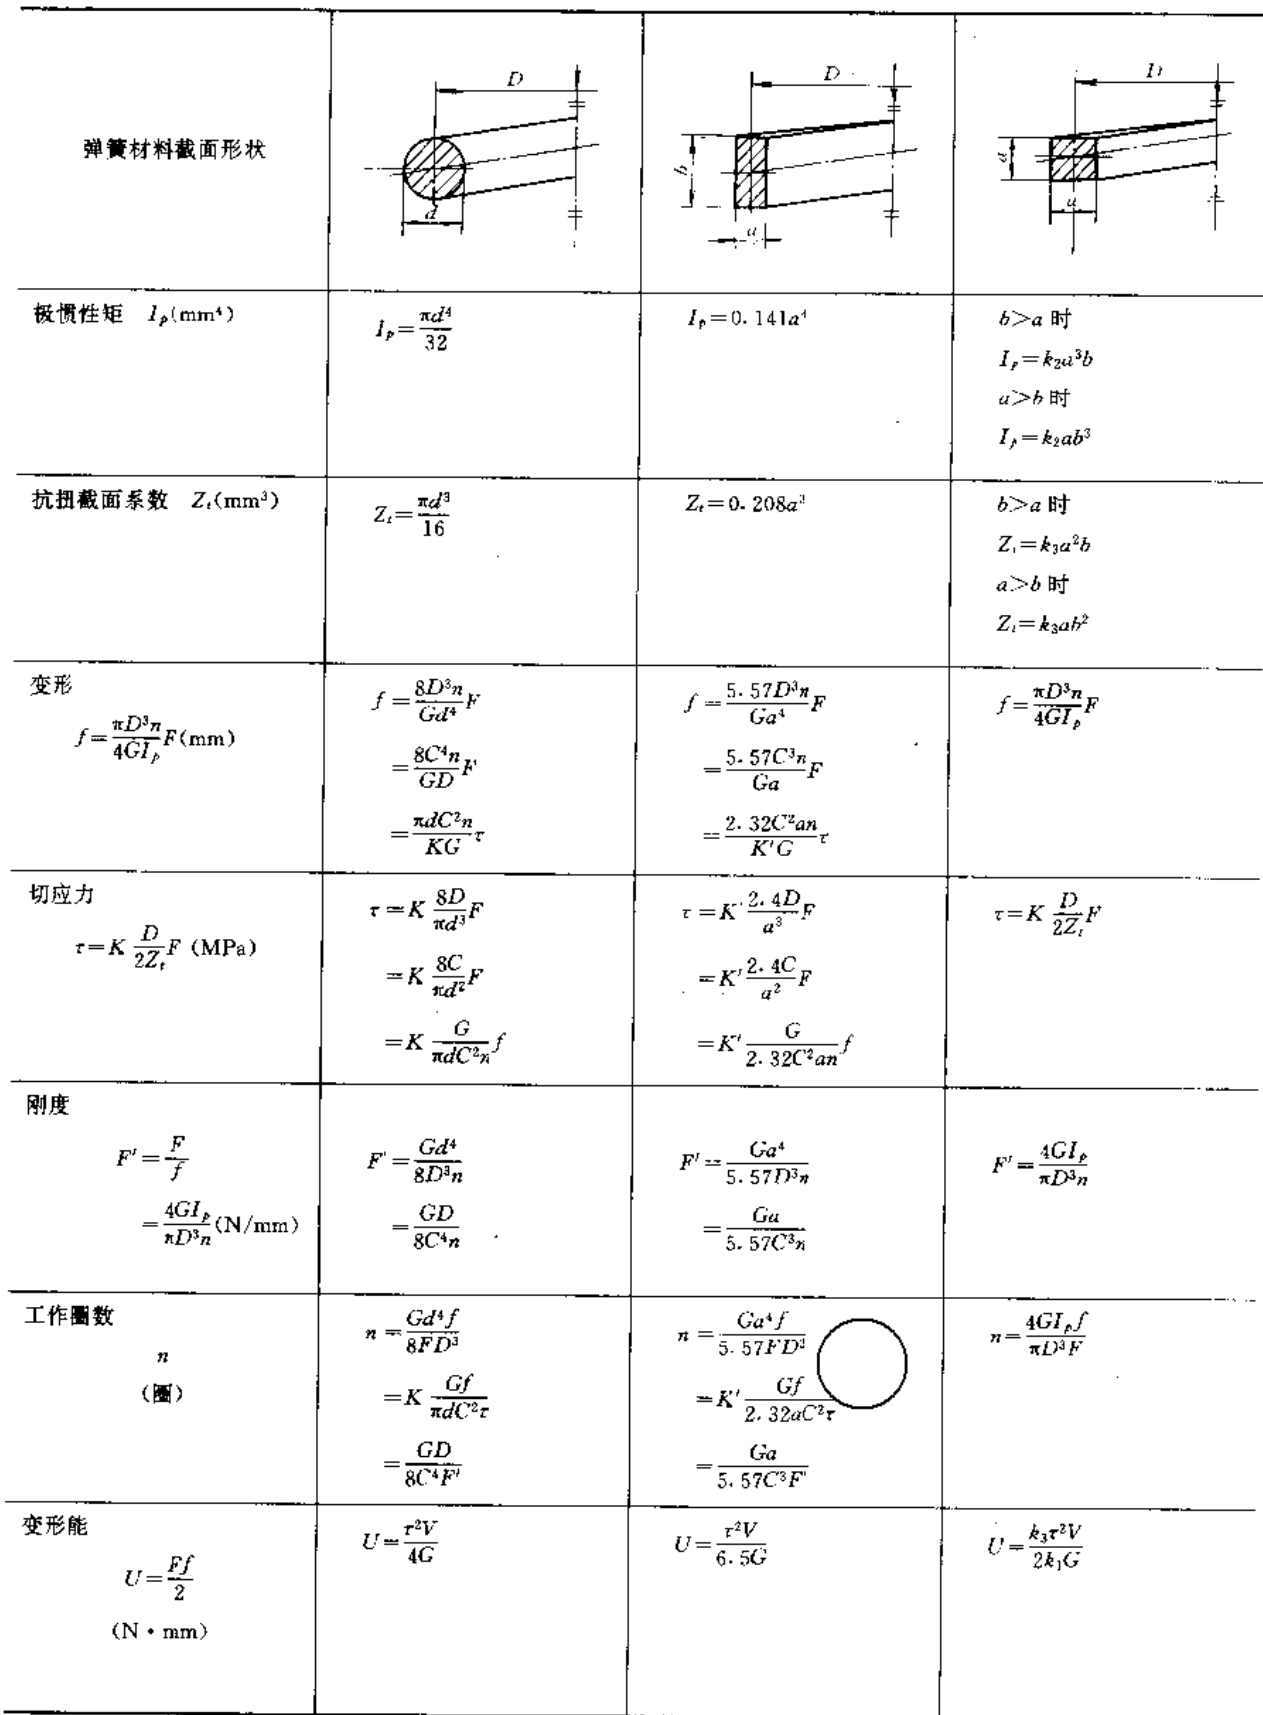 弹簧材料截面形状
D
d
D
b
a
D
a
a
极惯性矩 I_p(mm⁴)
I_p=πd⁴/32
I_p=0.141a⁴
b>a 时
I_p=k₂a³b
a>b 时
I_p=k₂ab³
抗扭截面系数 Z_t(mm³)
Z_t=πd³/16
Z_t=0.208a³
b>a 时
Z_t=k₃a²b
a>b 时
Z_t=k₃ab²
变形
f=πD³n/4GI_p F(mm)
f=8D³n/Gd⁴ F
=8C⁴n/GD F
=πdC²n/KG τ
f=5.57D³n/Ga⁴ F
=5.57C³n/Ga F
=2.32C²an/K′G τ
f=πD³n/4GI_p F
切应力
τ=K D/2Z_t F (MPa)
τ=K 8D/πd³ F
=K 8C/πd² F
=K G/πdC²n f
τ=K′ 2.4D/a³ F
=K′ 2.4C/a² F
=K′ G/2.32C²an f
τ=K D/2Z_t F
刚度
F′=F/f
=4GI_p/πD³n (N/mm)
F′=Gd⁴/8D³n
=GD/8C⁴n
F′=Ga⁴/5.57D³n
=Ga/5.57C³n
F′=4GI_p/πD³n
工作圈数
n
(圈)
n=Gd⁴f/8FD³
=K Gf/πdC²τ
=GD/8C⁴F′
n=Ga⁴f/5.57FD³
=K′ Gf/2.32aC²τ
=Ga/5.57C³F′
n=4GI_pf/πD³F
变形能
U=Ff/2
(N·mm)
U=τ²V/4G
U=τ²V/6.5G
U=k₃τ²V/2k₁G